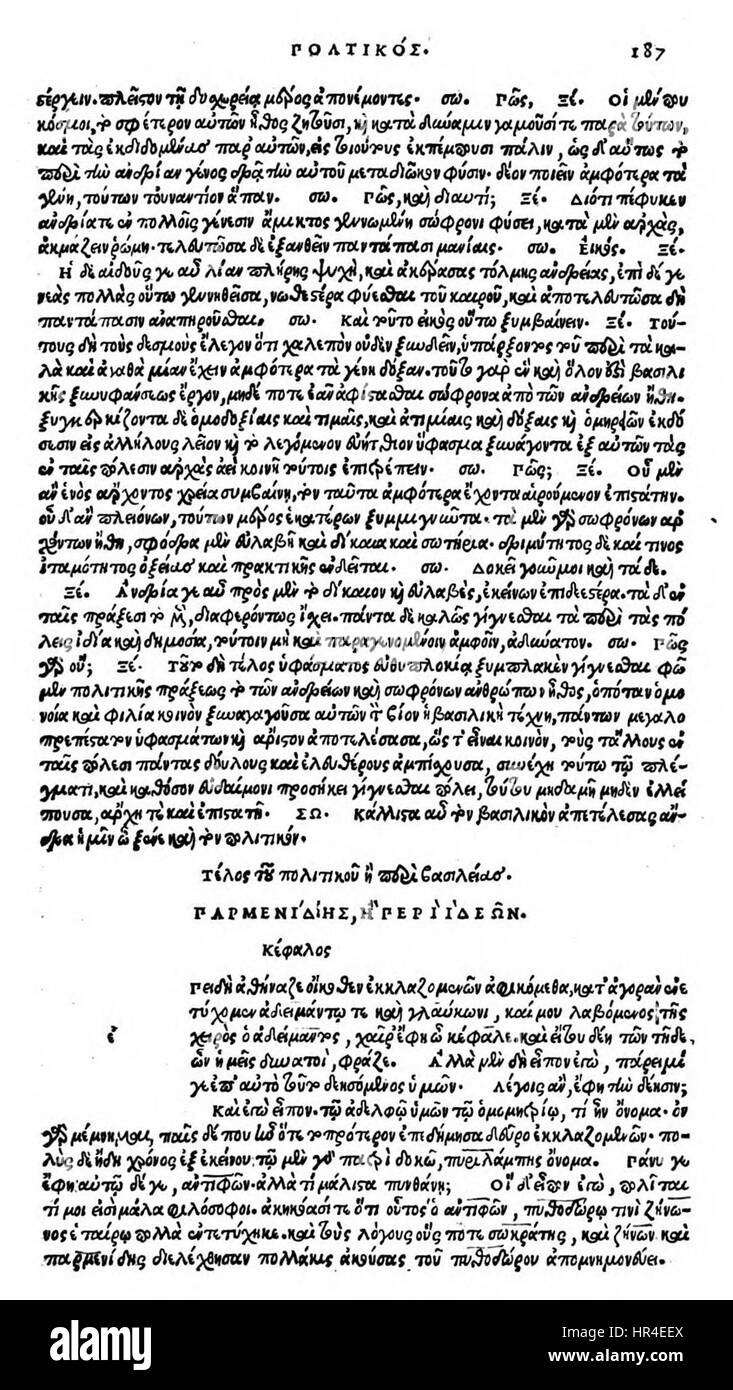 ΠΟΛΤΙΚΟΣ. 187
εἴργειν. πλεῖστον τῇ δυσχερείᾳ μέρος ἀπονέμοντες. σω. Πῶς, Ξέ. Οἱ μέν που
κόσμιοι, τὸ σφέτερον αὐτῶν ἦθος ζητοῦσι, καὶ κατὰ δύναμιν γαμοῦσί τε παρὰ τούτων,
καὶ τὰς ἐκδιδομένας παρ' αὐτῶν, εἰς τοιούτους ἐκπέμπουσι πάλιν, ὡς δ' αὕτως τὸ
περὶ τὴν ἀνδρίαν γένος δρᾷ τὴν αὐτοῦ μεταδιῶκον φύσιν. δέον ποιεῖν ἀμφότερα τὰ
γένη, τούτων τοὐναντίον ἅπαν. σω. Πῶς, καὶ διατί; Ξέ. Διότι πέφυκεν
ἀνδρία τε ἐν πολλαῖς γένεσιν ἄμικτος γεννωμένη σώφρονι φύσει, κατὰ μὲν ἀρχὰς,
ἀκμάζειν ῥώμῃ. τελευτῶσα δὲ ἐξανθεῖν παντάπασι μανίαις. σω. Εἰκός. Ξέ.
Ἡ δὲ αἰδοῦς γε αὖ λίαν πλήρης ψυχὴ, καὶ ἀκέρασος τόλμης ἀνδρείας, ἐπὶ δὲ γε
νεὰς πολλὰς οὕτω γεννηθεῖσα, νωθεστέρα φύεσθαι τοῦ καιροῦ, καὶ ἀποτελευτῶσα δὴ
παντάπασιν ἀναπηροῦσθαι. σω. Καὶ τοῦτο εἰκὸς οὕτω ξυμβαίνειν. Ξέ. Τού-
τους δὴ τοὺς δεσμοὺς ἔλεγον ὅτι χαλεπὸν οὐδὲν ξυνδεῖν, ὑπάρξοντος τοῦ περὶ τὰ κα-
λὰ καὶ ἀγαθὰ μίαν ἔχειν ἀμφότερα τὰ γένη δόξαν. τοῦτο γὰρ ἓν καὶ ὅλον ἐστὶ βασιλι
κῆς ξυνυφάνσεως ἔργον, μηδέ ποτε ἐᾶν ἀφίστασθαι σώφρονα ἀπὸ τῶν ἀνδρείων ἤθη.
ξυγκερκίζοντα δὲ ὁμοδοξίαις καὶ τιμαῖς, καὶ ἀτιμίαις καὶ δόξαις καὶ ὁμηρειῶν ἐκδό
σεσιν εἰς ἀλλήλους λεῖον καὶ τὸ λεγόμενον εὐήτριον ὕφασμα ξυνάγοντα ἐξ αὐτῶν τὰς
ἐν ταῖς πόλεσιν ἀρχὰς ἀεὶ κοινῇ τούτοις ἐπιτρέπειν. σω. Πῶς; Ξέ. Οὗ μὲν
ἂν ἑνὸς ἄρχοντος χρεία συμβαίνῃ, τὸν ταῦτα ἀμφότερα ἔχοντα αἱρούμενον ἐπιστάτην.
οὗ δ' ἂν πλειόνων, τούτων μέρος ἑκατέρων ξυμμιγνῦντα. τὰ μὲν γὰρ σωφρόνων ἀρ
χόντων ἤθη, σφόδρα μὲν εὐλαβῆ καὶ δίκαια καὶ σωτήρια. δριμύτητος δὲ καί τινος
ἰταμότητος ὀξείας καὶ πρακτικῆς ἐνδεῖται. σω. Δοκεῖ γοῦν μοι καὶ τάδε.
Ξέ. Ἀνδρία γε αὖ πρὸς μὲν τὸ δίκαιον καὶ εὐλαβὲς, ἐκείνων ἐπιδεεστέρα. τὸ δ' ἐν
ταῖς πράξεσι τὸ μὲν, διαφερόντως ἴσχει. πάντα δὲ καλῶς γίγνεσθαι τὰ περὶ τὰς πό
λεις ἰδίᾳ καὶ δημοσίᾳ, τούτοιν μὴ καὶ παραγενομένοιν ἀμφοῖν, ἀδύνατον. σω. Πῶς
γὰρ οὔ; Ξέ. Τοῦτο δὴ τέλος ὑφάσματος εὐθυπλοκίᾳ ξυμπλακὲν γίγνεσθαι φῶ
μεν πολιτικῆς πράξεως τὸ τῶν ἀνδρείων καὶ σωφρόνων ἀνθρώπων ἦθος, ὁπόταν ὁμο
νοίᾳ καὶ φιλίᾳ κοινὸν ξυναγαγοῦσα αὐτῶν τὸν βίον ἡ βασιλικὴ τέχνη, πάντων μεγαλο
πρεπέστατον ὑφασμάτων καὶ ἄριστον ἀποτελέσασα, ὥς τ' εἶναι κοινὸν, τούς τ' ἄλλους ἐν
ταῖς πόλεσι πάντας δούλους καὶ ἐλευθέρους ἀμπίσχουσα, συνέχῃ τούτῳ τῷ πλέγ-
ματι, καὶ καθόσον εὐδαίμονι προσήκει γίγνεσθαι πόλει, τούτου μηδαμῇ μηδὲν ἐλλεί
πουσα, ἄρχῃ τε καὶ ἐπιστατῇ. ΣΩ. Κάλλιστα αὖ τὸν βασιλικὸν ἀπετέλεσας ἄν-
δρα ἡμῖν ὦ ξένε καὶ τὸν πολιτικόν.
Τέλος τοῦ πολιτικοῦ ἢ περὶ βασιλείας.
ΠΑΡΜΕΝΙΔΗΣ, Ἢ ΠΕΡΙ ΙΔΕΩΝ.
Κέφαλος
ἐ
Πειδὴ ἀθήναζε οἴκοθεν ἐκ κλαζομενῶν ἀφικόμεθα, κατ' ἀγορὰν ἐνε
τύχομεν ἀδειμάντῳ τε καὶ γλαύκωνι, καί μου λαβόμενος τῆς
χειρὸς ὁ ἀδείμαντος, χαῖρ' ἔφη ὦ κέφαλε. καὶ εἴ του δέῃ τῶν τῇδε,
ὧν ἡμεῖς δυνατοὶ, φράζε. Ἀλλὰ μὲν δὴ εἶπον ἐγὼ, πάρειμί
γε ἐπ' αὐτὸ τοῦτο δεησόμενος ὑμῶν. Λέγοις ἂν, ἔφη τὴν δέησιν;
Καὶ ἐγὼ εἶπον. τῷ ἀδελφῷ ὑμῶν τῷ ὁμομητρίῳ, τί ἦν ὄνομα. οὐ
γὰρ μέμνημαι, παῖς δέ που ἦν ὅτε τὸ πρότερον ἐπιδήμησα δεῦρο ἐκ κλαζομενῶν. πο-
λὺς δὲ ἤδη χρόνος ἐξ ἐκείνου. τῷ μὲν γὰρ πατρὶ δοκῶ, πυριλάμπης ὄνομα. Πάνυ γε
ἔφη. αὐτῷ δέ γε, ἀντιφῶν. ἀλλὰ τί μάλιστα πυνθάνῃ; Οἵδ' εἶπον ἐγὼ, πολῖταί
τί μοι εἰσὶ μάλα φιλόσοφοι. ἀκηκόασί τε ὅτι οὗτος ὁ ἀντιφῶν, πυθοδώρῳ τινὶ ζήνω-
νος ἑταίρῳ πολλὰ ἐντετύχηκε. καὶ τοὺς λόγους οὕς ποτε σωκράτης, καὶ ζήνων καὶ
παρμενίδης διελέχθησαν πολλάκις ἀκούσας τοῦ πυθοδώρου ἀπομνημονεύει.
alamy stock photo
alamy
HR4EEX
www.alamy.com